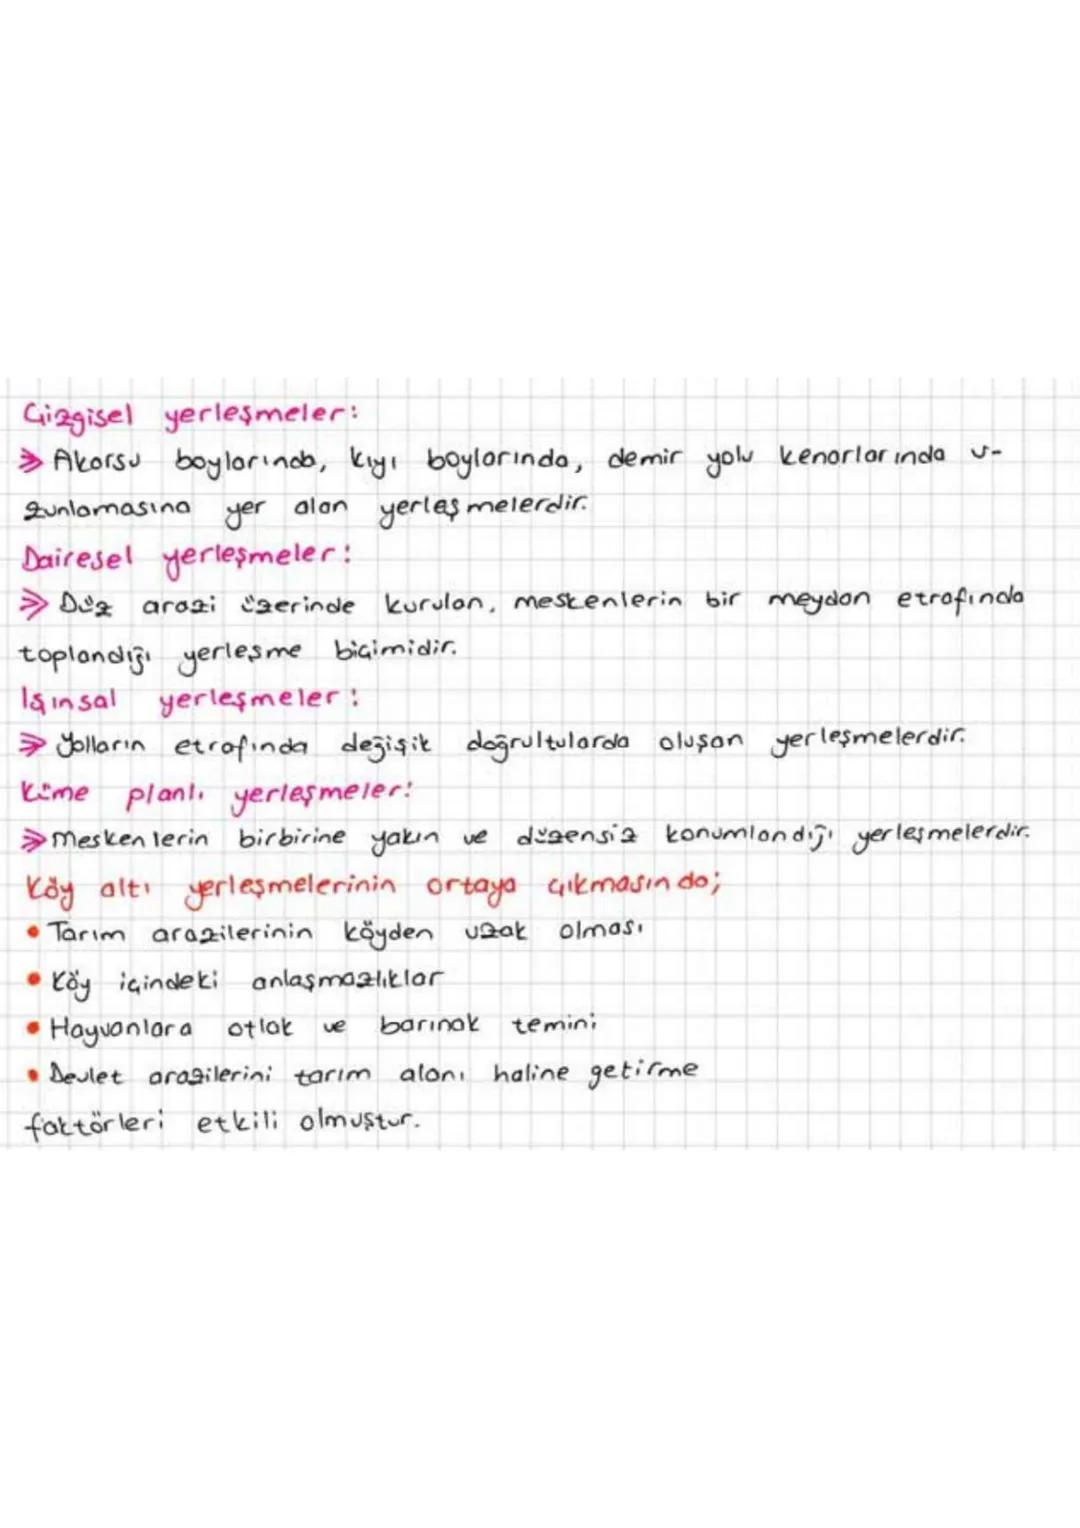 Çizgisel yerleşmeler:
» Akarsu boylarında, kıyı boylarında, demir yolu kenarlarında u-
zunlamasına yer alan yerleşmelerdir.
Dairesel yerleşmeler:
» Düz arazi üzerinde kurulan, meskenlerin bir meydan etrafında
toplandığı yerleşme biçimidir.
Işınsal yerleşmeler:
» Yolların etrafında değişik doğrultularda oluşan yerleşmelerdir.
Küme planlı yerleşmeler:
» Meskenlerin birbirine yakın ve düzensiz konumlandığı yerleşmelerdir.
Köy altı yerleşmelerinin ortaya çıkmasında;
• Tarım arazilerinin köyden uzak olması
• Köy içindeki anlaşmazlıklar
• Hayvanlara otlak ve barınak temini
• Devlet arazilerini tarım alanı haline getirme
faktörleri etkili olmuştur.